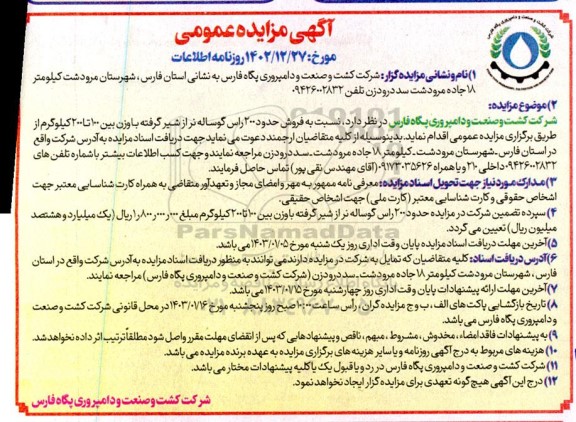 آگهی مزایده عمومی
مورخ: ۱۴۰۲/۱۲/۲۷ روزنامه اطلاعات
۱) نام و نشانی مزایده گزار: شرکت کشت و صنعت و دامپروری پگاه فارس به نشانی استان فارس ، شهرستان مرودشت کیلومتر
۱۸ جاده مرودشت سد درودزن تلفن ۰۹۴۲۶۰۰۲۸۳۲
۲) موضوع مزایده:
شرکت کشت و صنعت و دامپروری پگاه فارس در نظر دارد، نسبت به فروش حدود ۲۰۰ راس گوساله نر از شیر گرفته با وزن بین ۱۰۰ تا ۲۰۰ کیلوگرم از
طریق برگزاری مزایده عمومی اقدام نماید. بدینوسیله از کلیه متقاضیان ارجمند دعوت می نماید جهت دریافت اسناد مزایده به آدرس شرکت واقع
در استان فارس ـ شهرستان مرودشت ـ کیلومتر ۱۸ جاده مرودشت ـ سد درودزن مراجعه نمایند و جهت کسب اطلاعات بیشتر با شماره تلفن های
۰۹۴۲۶۰۰۲۸۳۲ داخلی ۲۱۰ و یا همراه ۰۹۱۷۳۰۳۵۶۲۶ (آقای مهندس نقی پور) تماس حاصل فرمایند.
۳) مدارک مورد نیاز جهت تحویل اسناد مزایده: معرفی نامه ممهور به مهر و امضای مجاز و تعهدآور متقاضی به همراه کارت شناسایی معتبر جهت
اشخاص حقوقی و کارت شناسایی معتبر (کارت ملی) جهت اشخاص حقیقی.
۴) سپرده تضمین شرکت در مزایده حدود ۲۰۰ راس گوساله نر از شیر گرفته با وزن بین ۱۰۰ تا ۲۰۰ کیلوگرم مبلغ ۱/۸۰۰/۰۰۰/۰۰۰ ریال (یک میلیارد و هشتصد
میلیون ریال) تعیین می گردد.
۵) آخرین مهلت دریافت اسناد مزایده پایان وقت اداری روز یک شنبه مورخ ۱۴۰۳/۰۱/۰۵ می باشد.
۶) آدرس دریافت اسناد: کلیه متقاضیان که تمایل به شرکت در مزایده دارند می توانند به منظور دریافت اسناد مزایده به آدرس شرکت واقع در استان
فارس ، شهرستان مرودشت کیلومتر ۱۸ جاده مرودشت ـ سد درودزن (شرکت کشت و صنعت و دامپروری پگاه فارس) مراجعه نمایند.
۷) آخرین مهلت ارائه پیشنهادات پایان وقت اداری روز چهارشنبه مورخ ۱۴۰۳/۰۱/۱۵ می باشد.
۸) تاریخ بازگشایی پاکت های الف، ب و ج مزایده گران راس ساعت ۱۰:۰۰ صبح روز پنجشنبه مورخ ۱۴۰۳/۰۱/۱۶ در محل قانونی شرکت کشت و صنعت
و دامپروری پگاه فارس می باشد.
۹) به پیشنهادات فاقد امضاء، مخدوش، مشروط، مبهم، ناقص و پیشنهادهایی که پس از انقضای مهلت مقرر واصل شود مطلقاً ترتیب اثر داده نخواهد شد.
۱۰) هزینه های مربوط به درج آگهی روزنامه و یا سایر هزینه های برگزاری مزایده به عهده برنده مزایده می باشد.
۱۱) شرکت کشت و صنعت و دامپروری پگاه فارس در رد و یا قبول یک یا کلیه پیشنهادات مختار می باشد.
۱۲) درج این آگهی هیچ گونه تعهدی برای مزایده گزار ایجاد نخواهد نمود.
شرکت کشت و صنعت و دامپروری پگاه فارس
ParsNamadData